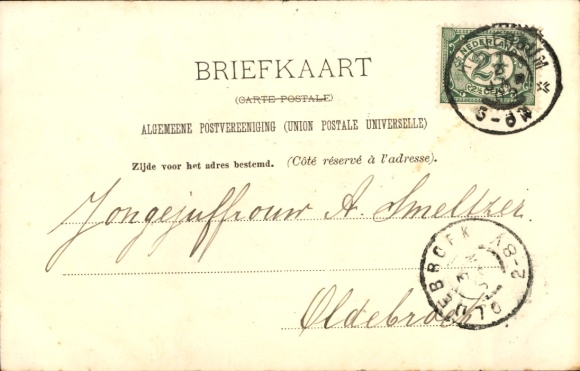 BRIEFKAART
(CARTE POSTALE)
ALGEMEENE POSTVEREENIGING (UNION POSTALE UNIVERSELLE)
Zijde voor het adres bestemd. (Côté réservé à l'adresse).
NEDERLAND
2½
CENT
5-6N
Jongejuffrouw A. Smeltzer.
Oldebroek
OLDEBROEK